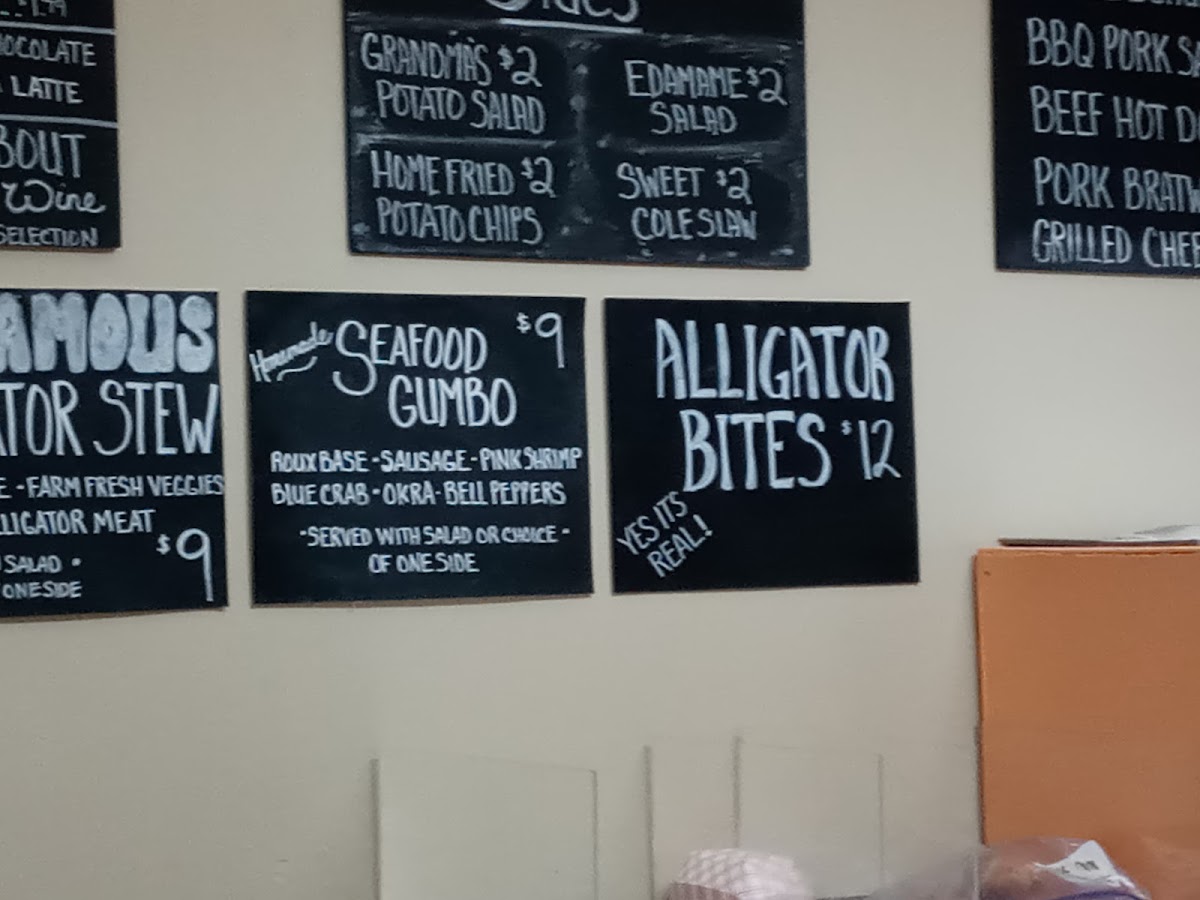 LATTE
Wine
SELECTION
Sides
GRANDMA'S $2
POTATO SALAD
EDAMAME $2
SALAD
HOME FRIED $2
POTATO CHIPS
SWEET $2
COLESLAW
BBQ PORK
BEEF HOT
PORK
GRILLED
STEW
- FARM FRESH VEGGIES
MEAT
$9
SALAD -
ONE SIDE
Homemade SEAFOOD $9
GUMBO
ROUX BASE - SAUSAGE - PINK SHRIMP
BLUE CRAB - OKRA - BELL PEPPERS
- SERVED WITH SALAD OR CHOICE -
OF ONE SIDE
ALLIGATOR
BITES $12
YES ITS
REAL!